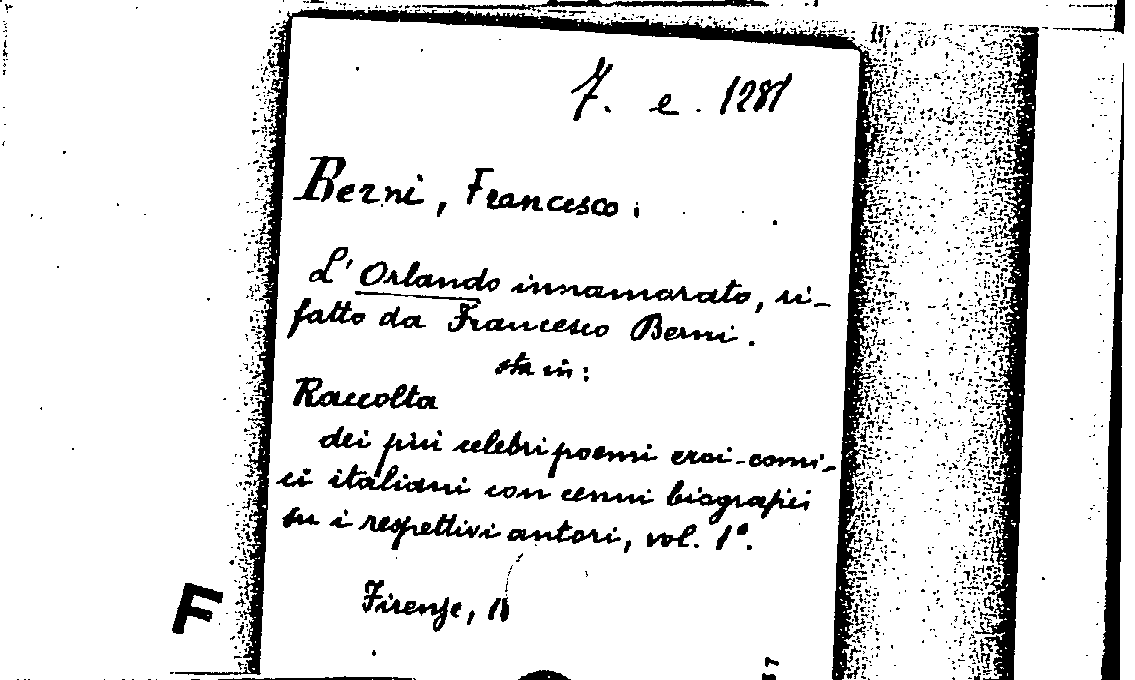 7. e. 1281
Berni, Francesco.
L'Orlando innamorato, ri-
fatto da Francesco Berni.
sta in:
Raccolta
dei più celebri poemi eroi-comi-
ci italiani con cenni biografici
su i respettivi autori, vol. 1°.
Firenze, 18
F